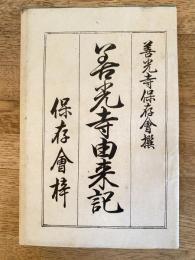 善光寺保存會撰
善光寺由来記
保存會梓